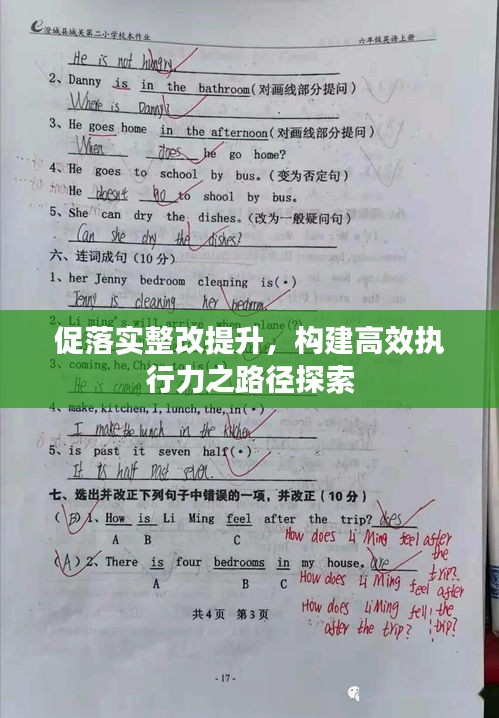 澄城县城关第二小学校本作业 六年级英语上册
He is not hungry.
2、Danny is in the bathroom(对画线部分提问)
Where is Danny?
3、He goes home in the afternoon(对画线部分提问)
When does he go home?
4、He goes to school by bus。(变为否定句)
He doesn't go to shool by bus.
5、She can dry the dishes。(改为一般疑问句)
Can she dry the dishes?
六、连词成句(10分)
1、her Jenny bedroom cleaning is(•)
Jenny is cleaning her bedroom.
促落实整改提升，构建高效执
行力之路径探索
3、coming,he,
4、make,kitchen,I,lunch,the,in(•)
I make the lunch in the kitchen
5、is past it seven half(•)
It is half past seven.
七、选出并改正下列句子中错误的一项，并改正(10分)
(B)1、How is Li Ming feel after the trip? does
A B C
How does Li Ming feel after the trip?
(A)2、There is four bedrooms in my house. are
A B C
How does Li Ming feel after the trip?
How does Li Ming fell the
after the trip? trip?
共4页 第3页
- 17 -